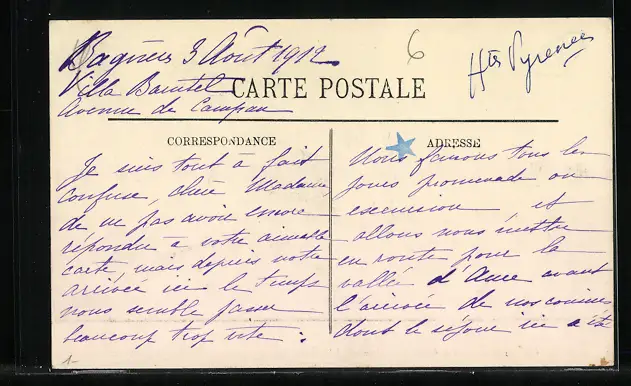 Bagnères 3 Août 1912
6
Htes Pyrenees
Villa
CARTE POSTALE
Avenue de Campan
CORRESPONDANCE
ADRESSE
Je suis tout à fait
confuse, chère Madame,
de ne pas avoir encore
répondu à votre aimable
carte, mais depuis votre
arrivée ici le temps
nous semble passer
beaucoup trop vite :
Nous faisons tous les
jours promenade ou
excursion et
allons nous mettre
en route pour la
vallée d'Aure avant
l'arrivée de nos cousines
dont le séjour ici a été
1-